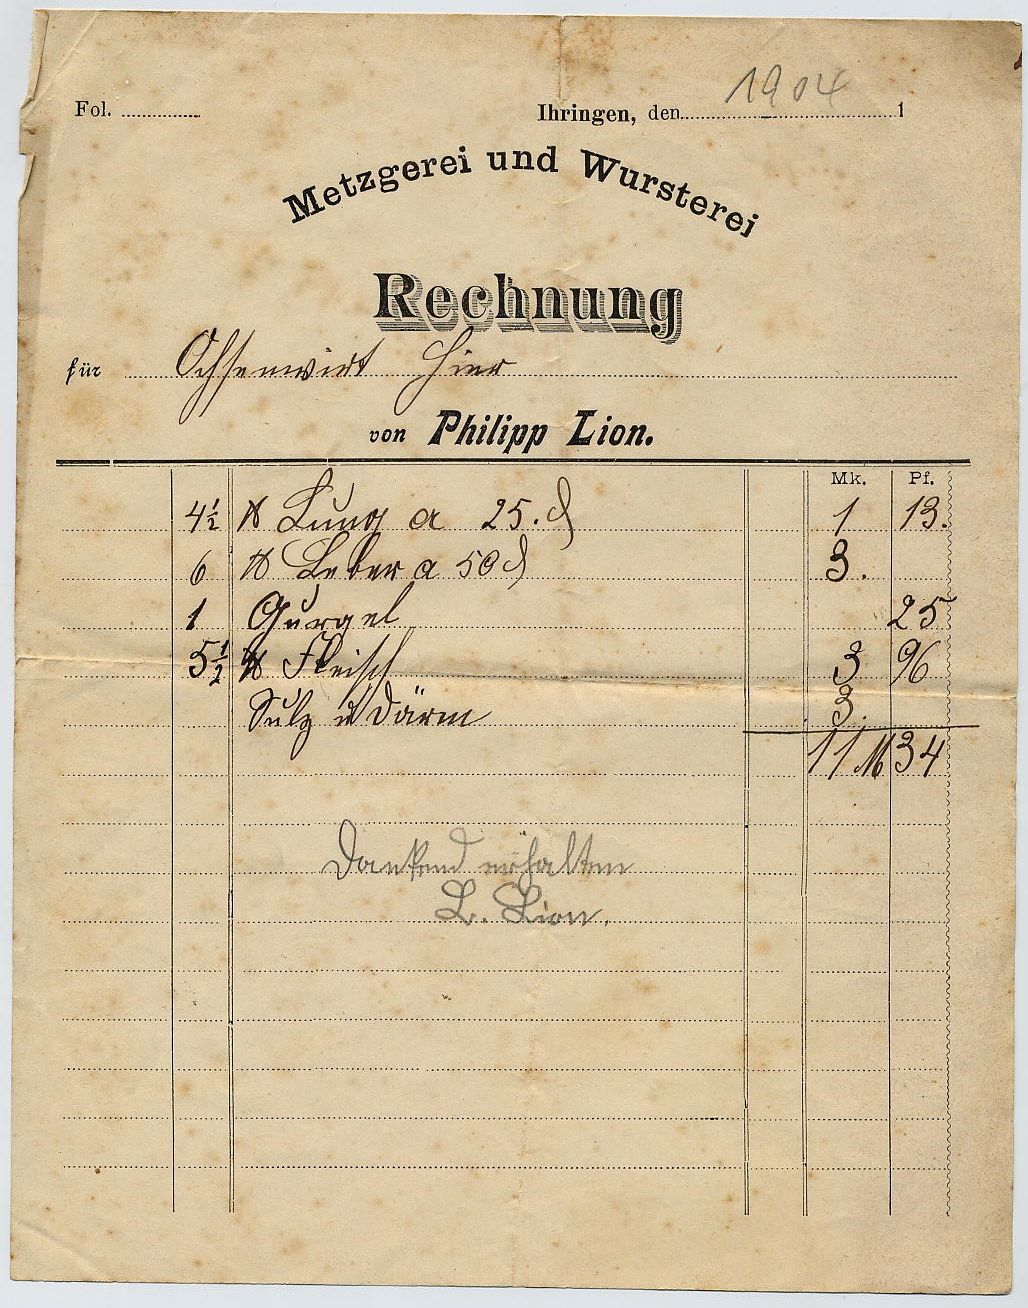 1904
Fol. ............... Ihringen, den................................ 1
Metzgerei und Wursterei
Rechnung
für Ochsenwirt hier
von Philipp Lion.
Mk. Pf.
4½ ℔ Lung a 25. ₰ 1 13.
6 ℔ Leber a 50 ₰ 3.
1 Gurgel 25
5½ ℔ Fleisch 3 96
Sulz u Därm 3.
11 M 34
Dankend erhalten
L. Lion.